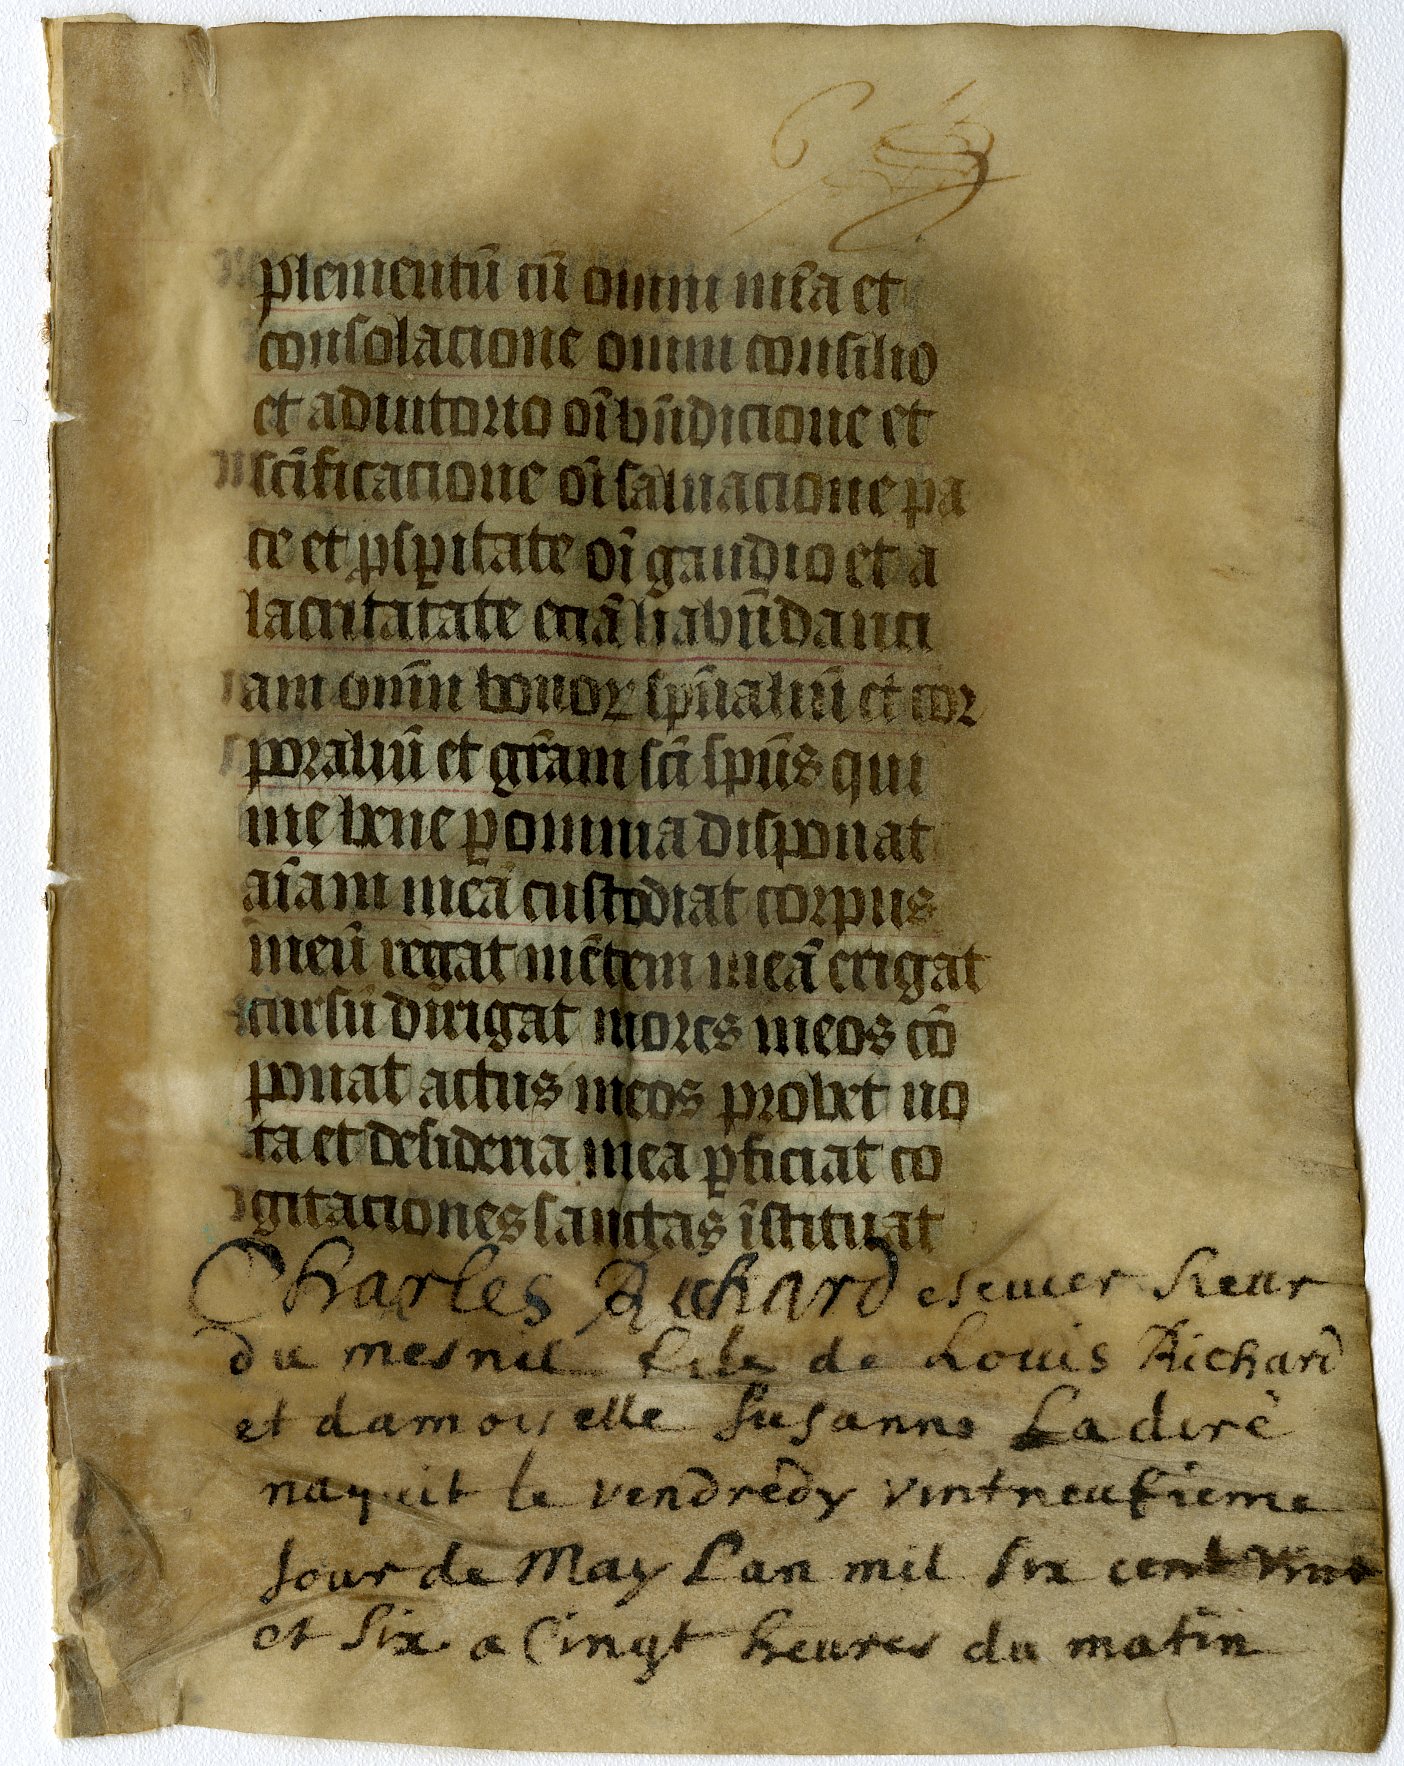 plementū cū omni mīa et
consolacione omni consilio
et adiutorio oī bn̄dicione et
scīficacione oī saluacione pa
ce et ꝓsꝑitate oī gaudio et a
lacritatate eciā habūdanci
am omīu bonoꝝ spūaliū et cor
poraliū et grām scī spūs qui
me bene ꝑ omnia disponat
aīam meā custodiat corpus
meū regat mētem meā erigat
cursū dirigat mores meos cō
ponat actus meos probet uo
ta et desideria mea ꝑficiat co
gitaciones sanctas īstituat
Charles Richard escuier sieur
du mesnil fils de Louis Richard
et damoiselle Susanne Ladiré
nayuit le vendredy vintneufieme
Jour de May Lan mil six cent vint
et six a Cinqt heures du matin